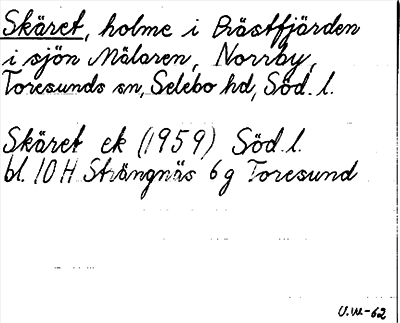 Skäret, holme i Prästfjärden
i sjön Mälaren, Norrby,
Toresunds sn, Selebo hd, Söd. l.
Skäret ek (1959) Söd. l.
bl. 10 H Strängnäs 6 g Toresund
U.W.-62